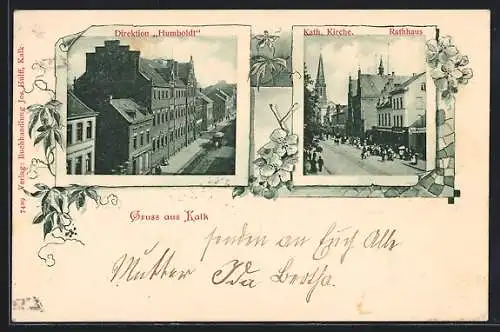 Direktion „Humboldt"
Kath. Kirche. Rathhaus
7409 Verlag: Buchhandlung Jos. Hölff, Kalk
Gruss aus Kalk
senden an Euch Alle
Mutter Ida Bertha.